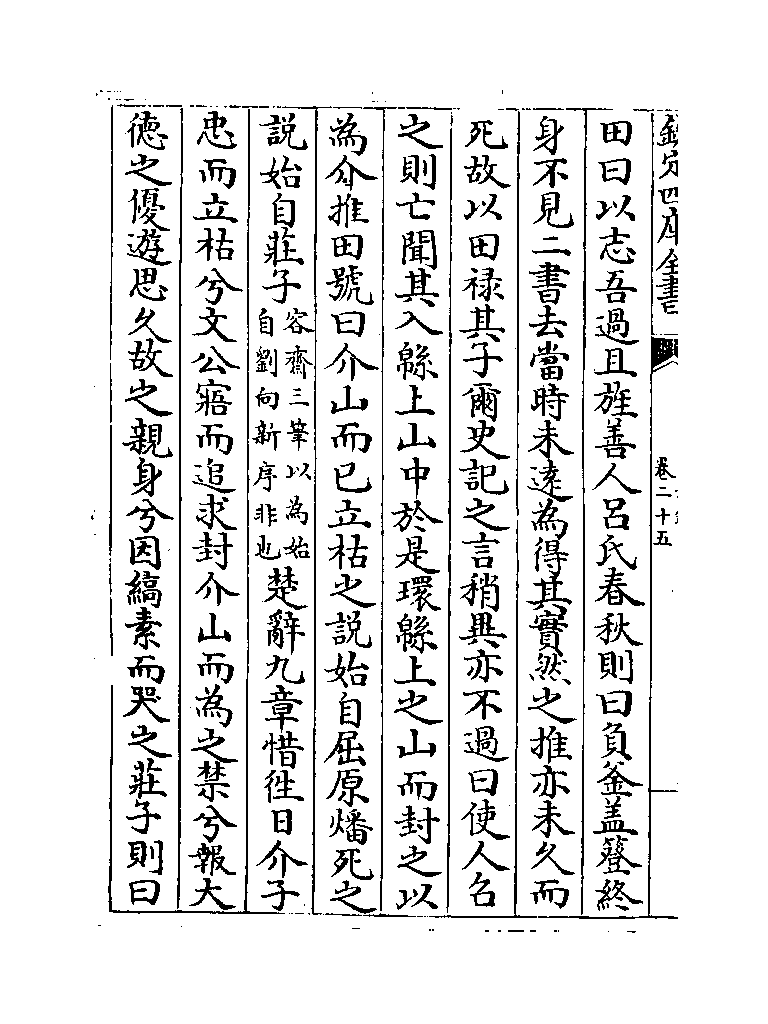 欽定四庫全書
卷二十五
田曰以志吾過且旌善人呂氏春秋則曰負釜盖簦終
身不見二書去當時未逺為得其實然之推亦未久而
死故以田禄其子爾史記之言稍異亦不過曰使人召
之則亡聞其入緜上山中於是環緜上之山而封之以
為介推田號曰介山而已立枯之説始自屈原燔死之
説始自莊子容齋三筆以為始自劉向新序非也楚辭九章惜徃日介子
忠而立枯兮文公寤而追求封介山而為之禁兮報大
徳之優遊思久故之親身兮因縞素而哭之莊子則曰